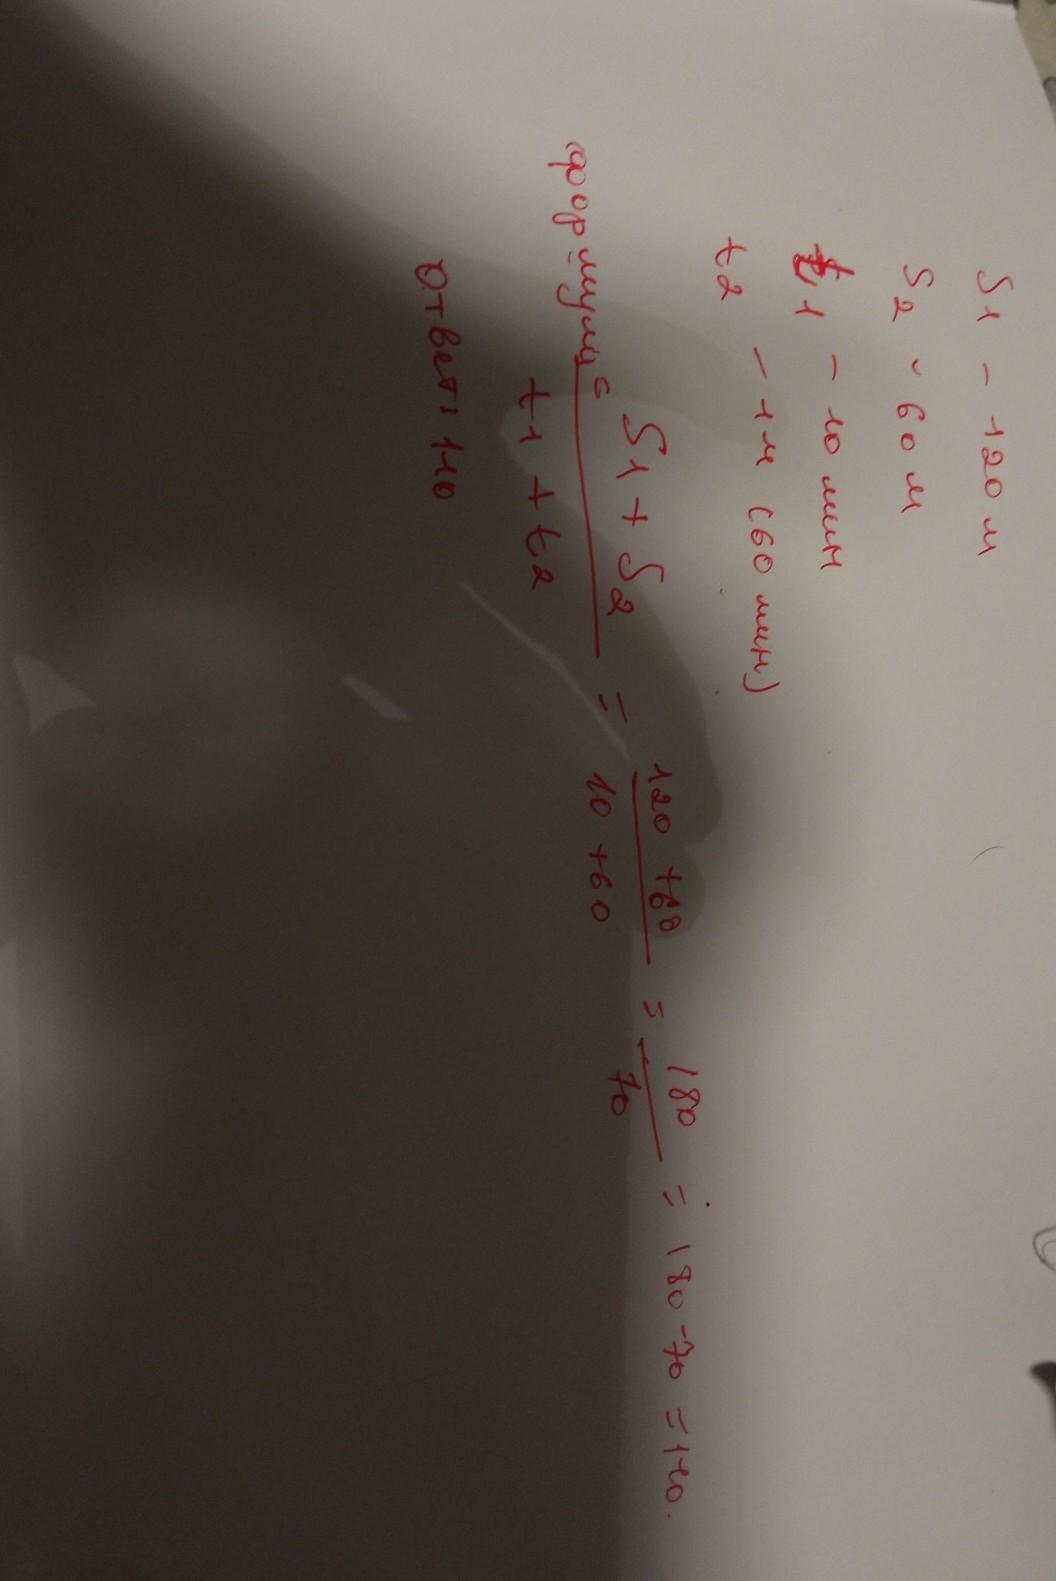 S1 - 120 м
S2 - 60 м
t1 - 10 мин
t2 - 1ч (60 мин)
формула S1 + S2 / t1 + t2 = 120 + 60 / 10 + 60 = 180 / 70 = 180 - 70 = 110.
Ответ: 110